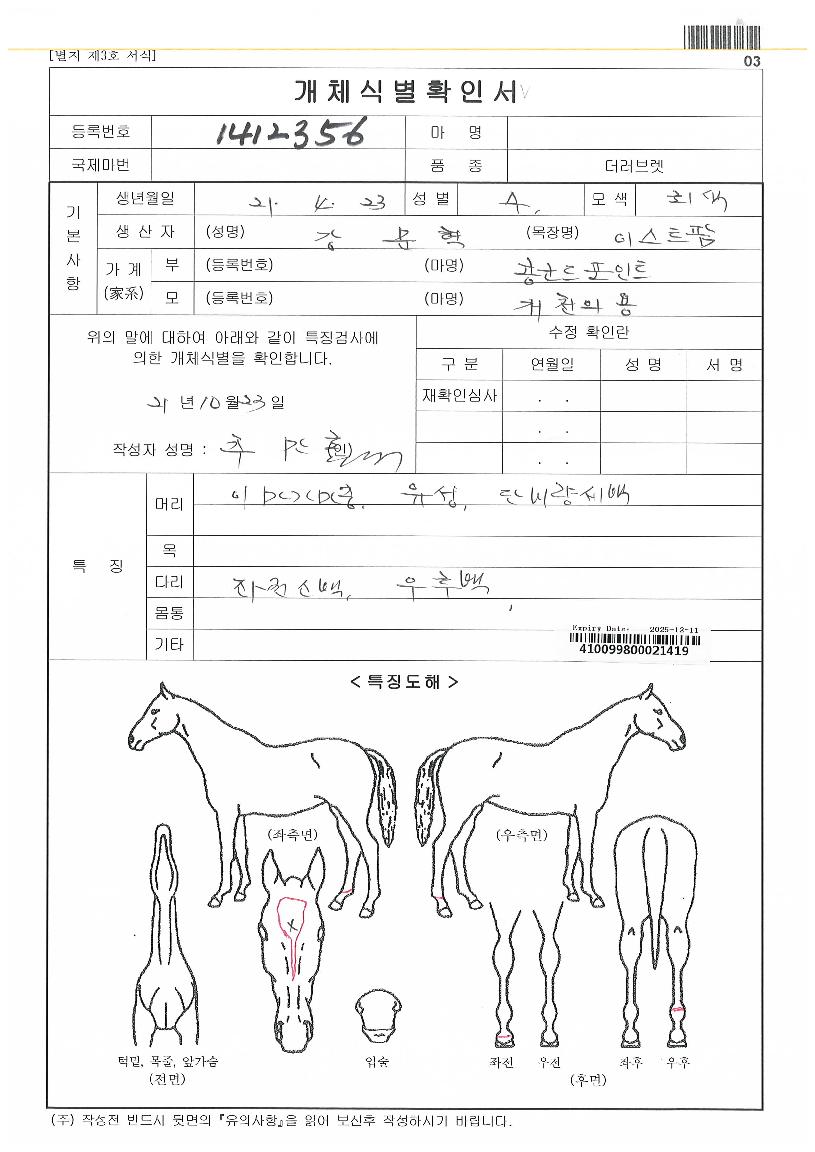 03
[별지 제3호 서식]
개체식별확인서
등록번호 1412356 마 명
국제마번 품 종 더러브렛
기본사항
생년월일 21. 4. 23 성 별 모 색 회색
생 산 자 (성명) 강 문 혁 (목장명) 이스트팜
가 계 (家系) 부 (등록번호) (마명) 콩코드포인트
모 (등록번호) (마명) 개천의용
위의 말에 대하여 아래와 같이 특징검사에
의한 개체식별을 확인합니다.
21 년 10 월 23 일
작성자 성명 : (인)
수정 확인란
구 분 연월일 성 명 서 명
재확인심사 . .
. .
. .
특 징
머리 유성,
목
다리 우후백
몸통
기타
Expiry Date: 2025-12-11
410099800021419
< 특징도해 >
(좌측면) (우측면)
턱밑, 목줄, 앞가슴 입술 좌전 우전 좌후 우후
(전면) (후면)
(주) 작성전 반드시 뒷면의 『유의사항』을 읽어 보신후 작성하시기 바랍니다.